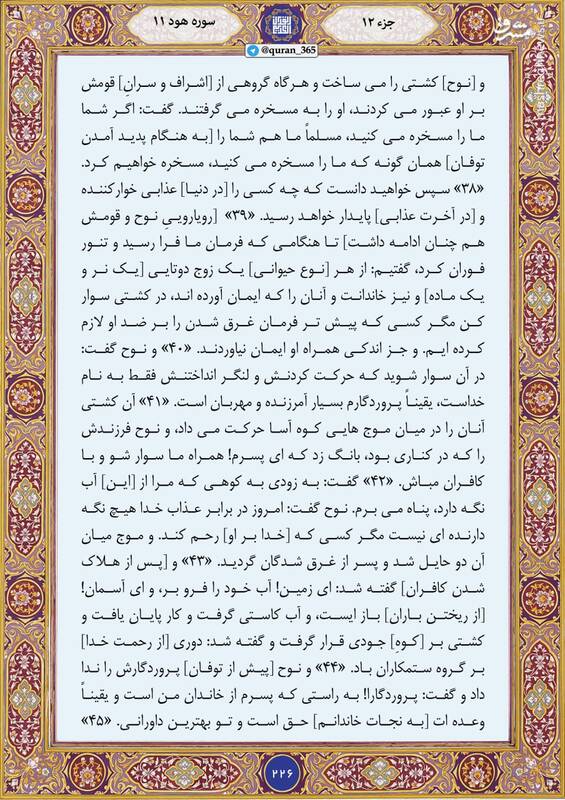 جزء ۱۲
سوره هود ۱۱
@quran_365
مشرق
و [نوح] کشتی را می ساخت و هرگاه گروهی از [اشراف و سرانِ] قومش
بر او عبور می کردند، او را به مسخره می گرفتند. گفت: اگر شما
ما را مسخره می کنید، مسلماً ما هم شما را [به هنگام پدید آمدن
توفان] همان گونه که ما را مسخره می کنید، مسخره خواهیم کرد.
«۳۸» سپس خواهید دانست که چه کسی را [در دنیا] عذابی خوارکننده
و [در آخرت عذابی] پایدار خواهد رسید. «۳۹» [رویاروییِ نوح و قومش
هم چنان ادامه داشت] تا هنگامی که فرمان ما فرا رسید و تنور
فوران کرد، گفتیم: از هر [نوع حیوانی] یک زوج دوتایی [یک نر و
یک ماده] و نیز خاندانت و آنان را که ایمان آورده اند، در کشتی سوار
کن مگر کسی که پیش تر فرمان غرق شدن را بر ضد او لازم
کرده ایم. و جز اندکی همراه او ایمان نیاوردند. «۴۰» و نوح گفت:
در آن سوار شوید که حرکت کردنش و لنگر انداختنش فقط به نام
خداست، یقیناً پروردگارم بسیار آمرزنده و مهربان است. «۴۱» آن کشتی
آنان را در میان موج هایی کوه آسا حرکت می داد، و نوح فرزندش
را که در کناری بود، بانگ زد که ای پسرم! همراه ما سوار شو و با
کافران مباش. «۴۲» گفت: به زودی به کوهی که مرا از [این] آب
نگه دارد، پناه می برم. نوح گفت: امروز در برابر عذاب خدا هیچ نگه
دارنده ای نیست مگر کسی که [خدا بر او] رحم کند. و موج میان
آن دو حایل شد و پسر از غرق شدگان گردید. «۴۳» و [پس از هلاک
شدن کافران] گفته شد: ای زمین! آب خود را فرو بر، و ای آسمان!
[از ریختن باران] باز ایست، و آب کاستی گرفت و کار پایان یافت و
کشتی بر [کوهِ] جودی قرار گرفت و گفته شد: دوری [از رحمت خدا]
بر گروه ستمکاران باد. «۴۴» و نوح [پیش از توفان] پروردگارش را ندا
داد و گفت: پروردگارا! به راستی که پسرم از خاندان من است و یقیناً
وعده ات [به نجات خاندانم] حق است و تو بهترین داورانی. «۴۵»
۲۲۶